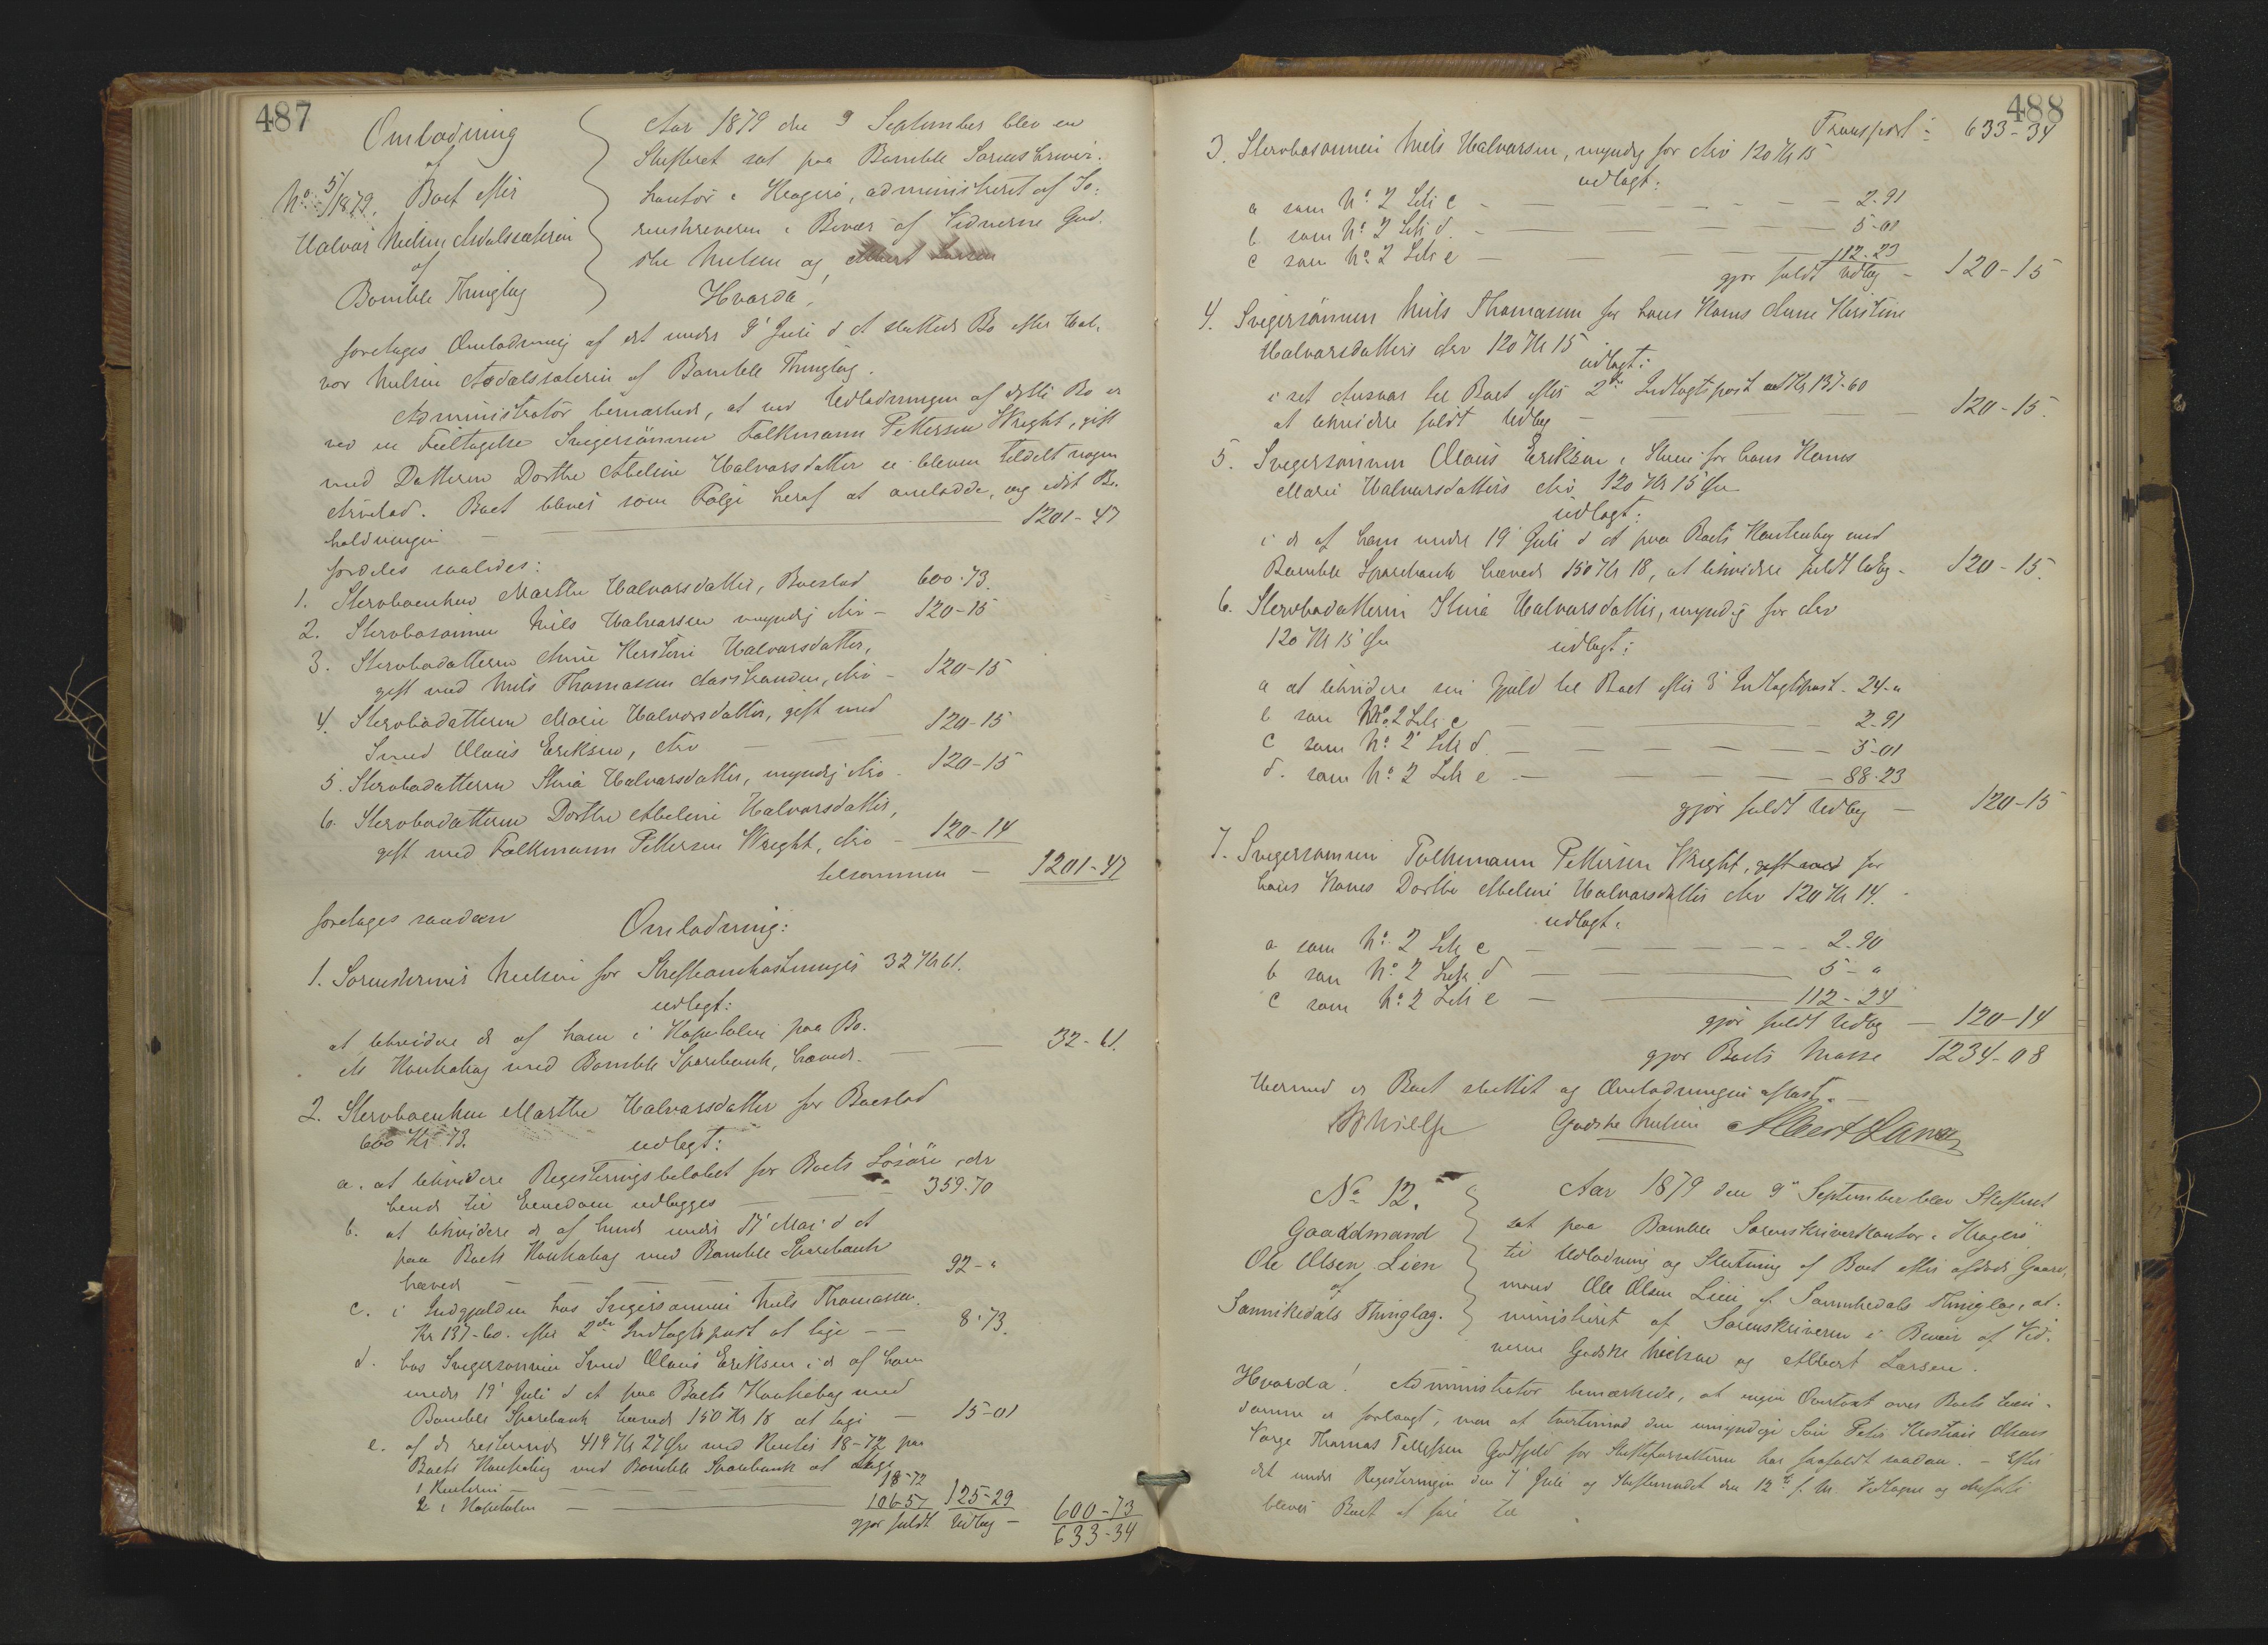 487
Omlodning
af
No 5/1879. Boet efter
Halvor Nielsen Aadalssæteren
af
Bamble Thinglag
Aar 1879 den 9 September blev en
Skifteret sat paa Bamble Sorenskriver-
kontor i Kragerø, administreret af So-
renskriveren i Bivær af Vidnerne God-
ske Nielsen og Albert Larsen
Hvorda!
foretages Omlodning af det under 9' Juli d A sluttede Bo efter Hal-
vor Nielsen Aadalssæteren af Bamble Thinglag.
Administrator bemærkede, at ved Udlodningen af dette Bo er
ved en Feiltagelse Svigersønnen Folkmann Pettersen Wright, gift
med Datteren Dorthe Abeline Halvorsdatter ei bleven tildelt nogen
Arvelod. Boet bliver som Følge heraf at omlodde, og idet Be-
holdningen — 1201-47
fordeles saaledes:
1. Stervboenken Marthe Halvorsdatter, Boeslod 600-73.
2. Stervbosønnen Niels Halvorsen myndig Arv - 120-15
3. Stervbodatteren Anne Kirstine Halvorsdatter,
gift med Niels Thomassen Aasstranden, Arv - 120-15
4. Stervbodatteren Maren Halvorsdatter, gift med
Smed Olaus Eriksen, Arv — 120-15
5. Stervbodatteren Stina Halvorsdatter, myndig Arv - 120-15
6. Stervbodatteren Dorthe Abeline Halvorsdatter,
gift med Folkmann Pettersen Wright, Arv - 120-14
tilsammen — 1201-47
foretages saadan Omlodning:
1. Sorenskriver Nielsen for Skifteomkostninger 32 Kr 61.
udlagt:
at likvidere de af ham i Kapitalen paa Bo-
ets Kontrabog med Bamble Sparebank, hævede — 32-61.
2. Stervboenken Marthe Halvorsdatter for Boeslod
600 Kr 73. udlagt:
a. at likvidere Registeringsbeløbet for Boets Løsøre, der
hende til Eiendom udlægges — 359-70
b. at likvidere de af hende under 17' Mai d A
paa Boets Kontrabog med Bamble Sparebank
hævede — 92-"
c. i Indgjælden hos Svigersønnen Niels Thomassen
Kr 137-60. efter 2den Indtægtspost at tage — 8-73.
d. hos Svigersønnen Smed Olaus Eriksen i de af ham
under 19' Juli d A paa Boets Kontrabog med
Bamble Sparebank hævede 150 Kr 18 at tage — 15-01
e. af de resterende 419 Kr 27 Øre med Renter 18-72 paa
Boets Kontrabog med Bamble Sparebank at tage
1 Renterne — 18-72
2 i Kapitalen — 106-57 125-29
gjør fuldt Udlæg — 600-73
633-34
488
Transport: 633-34
3. Stervbosønnen Niels Halvorsen, myndig for Arv 120 Kr 15
udlagt:
a som No 2 Litr c — 2-91
b som No 2 Litr d. — 5-01
c som No 2 Litr e — 112-23
gjør fuldt Udlæg - 120-15
4. Svigersønnen Niels Thomassen for hans Kones Anne Kirstine
Halvorsdatters Arv 120 Kr 15
udlagt:
i set Ansvar til Boet efter 2den Indtægtspost Kr 137-60
at likvidere fuldt Udlæg — 120-15.
5. Svigersønnen Olaus Eriksen i for hans Kones
Maren Halvorsdatters Arv 120 Kr 15 Øre
udlagt:
i de af ham under 19' Juli d A paa Boets Kontrabog med
Bamble Sparebank hævede 150 Kr 18, at likvidere fuldt Udlæg - 120-15.
6. Stervbodatteren Stina Halvorsdatter, myndig for Arv
120 Kr 15 Øre udlagt:
a at likvidere sin Gjæld til Boet efter 3' Indtægtspost - 24-"
b som No 2 Litr c — 2-91
c som No 2 Litr d. — 5-01
d. som No 2 Litr e — 88-23
gjør fuldt Udlæg — 120-15
7. Svigersønnen Folkmann Pettersen Wright, gift med for
hans Kones Dorthe Abeline Halvorsdatters Arv 120 Kr 14.
udlagt:
a som No 2 Litr c — 2-90
b som No 2 Litr d — 5-"
c som No 2 Litr e — 112-24
gjør fuldt Udlæg — 120-14
gjør Boets Masse 1234-08
Hermed er Boet sluttet og Omlodningen afläst. —
Godske Nielsen Albert Larsen
No 12.
Gaardmand
Ole Olsen Lien
af
Sannikedals Thinglag.
Aar 1879 den 9' September blev Skifteret
sat paa Bamble Sorenskriverkontor i Kragerø
til Udlodning og Slutning af Boet efter afdøde Gaard-
mand Ole Olsen Lien af Sannikedals Thinglag, ad-
ministreret af Sorenskriveren i Bivær af Vid-
nerne Godske Nielsen og Albert Larsen.
Hvorda! Administrator bemærkede, at ingen Overtaxt over Boets Eien-
domme er forlangt, men at tvertimod den umyndige Søn Peter Kristian Olsens
Værge Thomas Tellefsen Godfjeld for Skifteforvalteren har frafaldt saadan. - Efter
det under Registeringen den 7' Juli og Skiftemødet den 12' f. M. Vedtagne og Anførte
bliver Boet at føre til